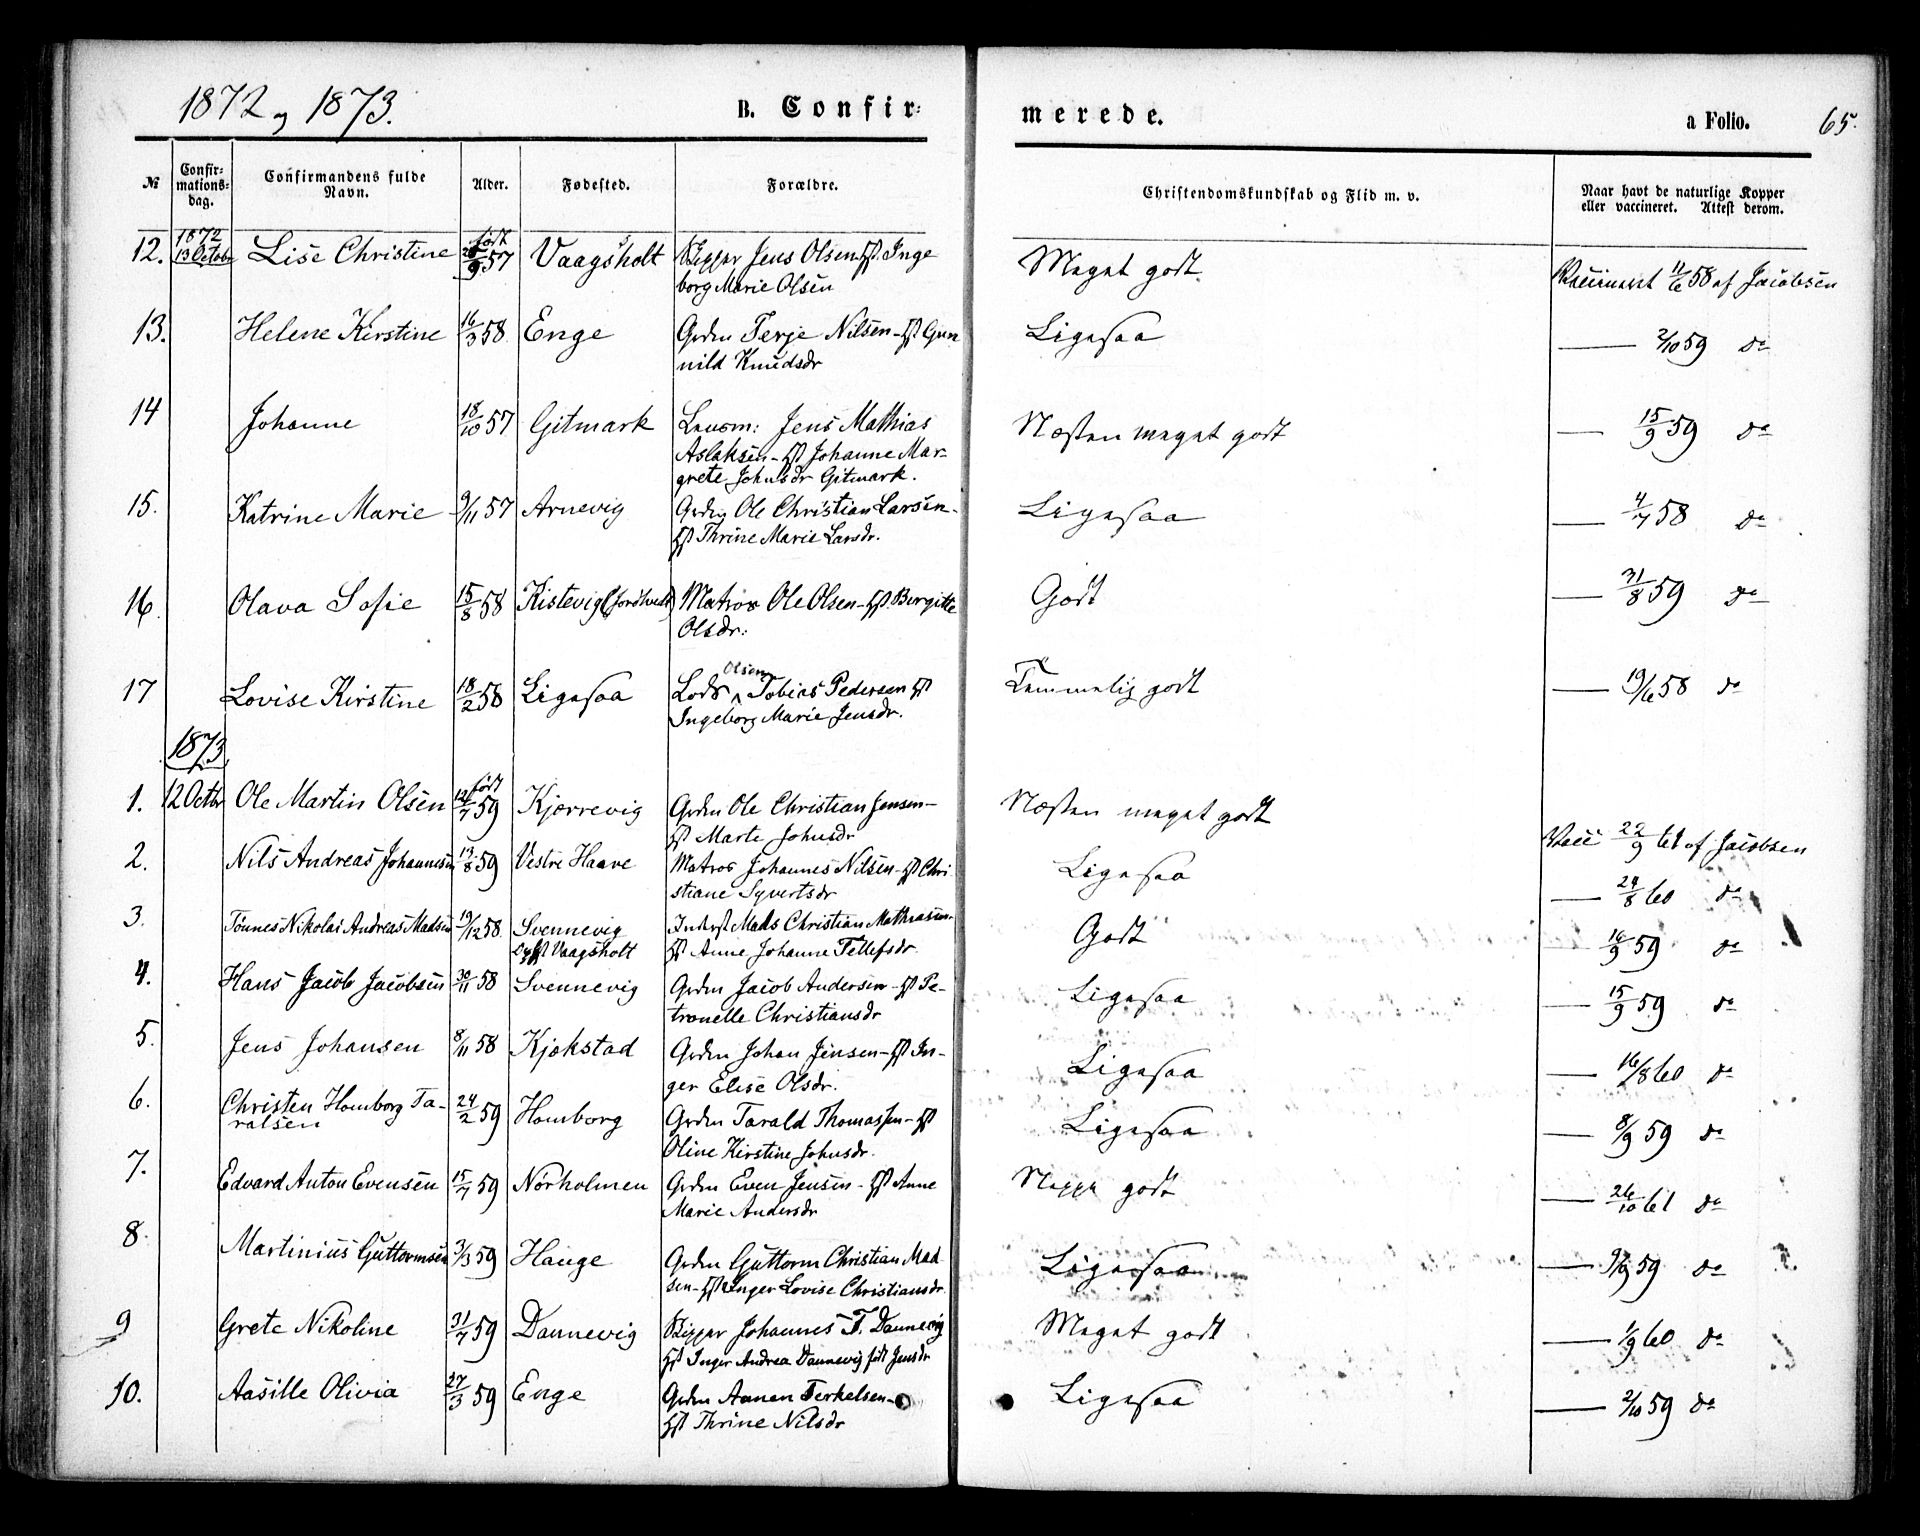 1872 og 1873.
B. Confir-
merede.
a Folio.
65.
№
Confir-
mations-
dag.
Confirmandens fulde
Navn.
Alder.
Fødested.
Forældre.
Christendomskundskab og Flid m. v.
Naar havt de naturlige Kopper
eller vaccineret. Attest derom.
12. 1872 13 Octobr Lise Christine født 9 57 Vaagsholt Skipper Jens Olsen Hst. Inge
borg Marie Olsen
Meget godt. Vaccineret 11/6 58 af Jacobsen
13. Helene Kirstine 16/3 58 Enge Grdm Terje Nilsen - Hst Gun
nild Knudsdr
Ligesaa — 2/10 59 do
14 Johanne 18/10 57 Gitmark Jens Mathias
Aslaksen - Hst Johanne Mar-
grete Johnsdr Gitmark.
Næsten meget godt — 15/9 59 do
15. Katrine Marie 9/11 57 Arnevig Grdm Ole Christian Larsen -
Hst Thrine Marie Larsdr.
Ligesaa — 4/7 58 do
16. Olava Sofie 15/8 58 Kistevig Matros Ole Olsen - Hst Birgitte
Olsdr:
Godt — 31/8 59 do
17 Lovise Kirstine 18/2 58 Ligesaa Lods Olsen Tobias Pedersen Hst
Ingeborg Marie Jensdr.
Temmelig godt — 19/6 58 do
1873
1. 12 Octbr Ole Martin Olsen født 12/7 59 Kjørrevig Grdm Ole Christian Jensen -
Hst Marte Johnsdr
Næsten meget godt Vacc 22/9 61 af Jacobsen
2. Nils Andreas Johannesen 13/8 59 Vestre Haave Matros Johannes Nilsen - Hst Chri
stiane Syvertsdr
Ligesaa — 24/8 60 do
3. Tønnes Nikolai Andreas Madsen 19/12 58 Svennevig Inderst Mads Christian Mathiasen -
Opfst Vaagsholt Hst Anne Johanne Tellefsdr.
Godt — 16/9 59 do
4. Hans Jacob Jacobsen 30/11 58 Svennevig Grdm Jacob Andersen - Hst Pe-
tronelle Christiansdr
Ligesaa — 15/9 59 do
5. Jens Johansen 8/11 58 Kjøkstad Grdm Johan Jensen - Hst In-
ger Elise Olsdr.
Ligesaa — 16/8 60 do
6. Christen Homborg Ta-
ralsen 24/2 59 Homborg Grdm Tarald Thomassen - Hst
Oline Kirstine Johnsdr.
Ligesaa — 8/9 59 do
7. Edvard Anton Evensen 15/7 59 Nørholmen Grdm Even Jensen - Hst Anne
Marie Andersdr
Neppe godt — 26/10 61 do
8. Martinius Guttormsen 3/3 59 Hauge Grdm Guttorm Christian Mad
sen - Hst Inger Lovise Christiansdr
Ligesaa — 9/9 59 do
9 Grete Nikoline 31/7 59 Dannevig Skipper Johannes T. Dannevig
Hst Inger Andrea Dannevig født Jensdr
Meget godt — 1/9 60 do
10. Aasille Olivia 27/3 59 Enge Grdm Aanen Terkelsen -
Hst Thrine Nilsdr
Ligesaa — 2/10 59 do